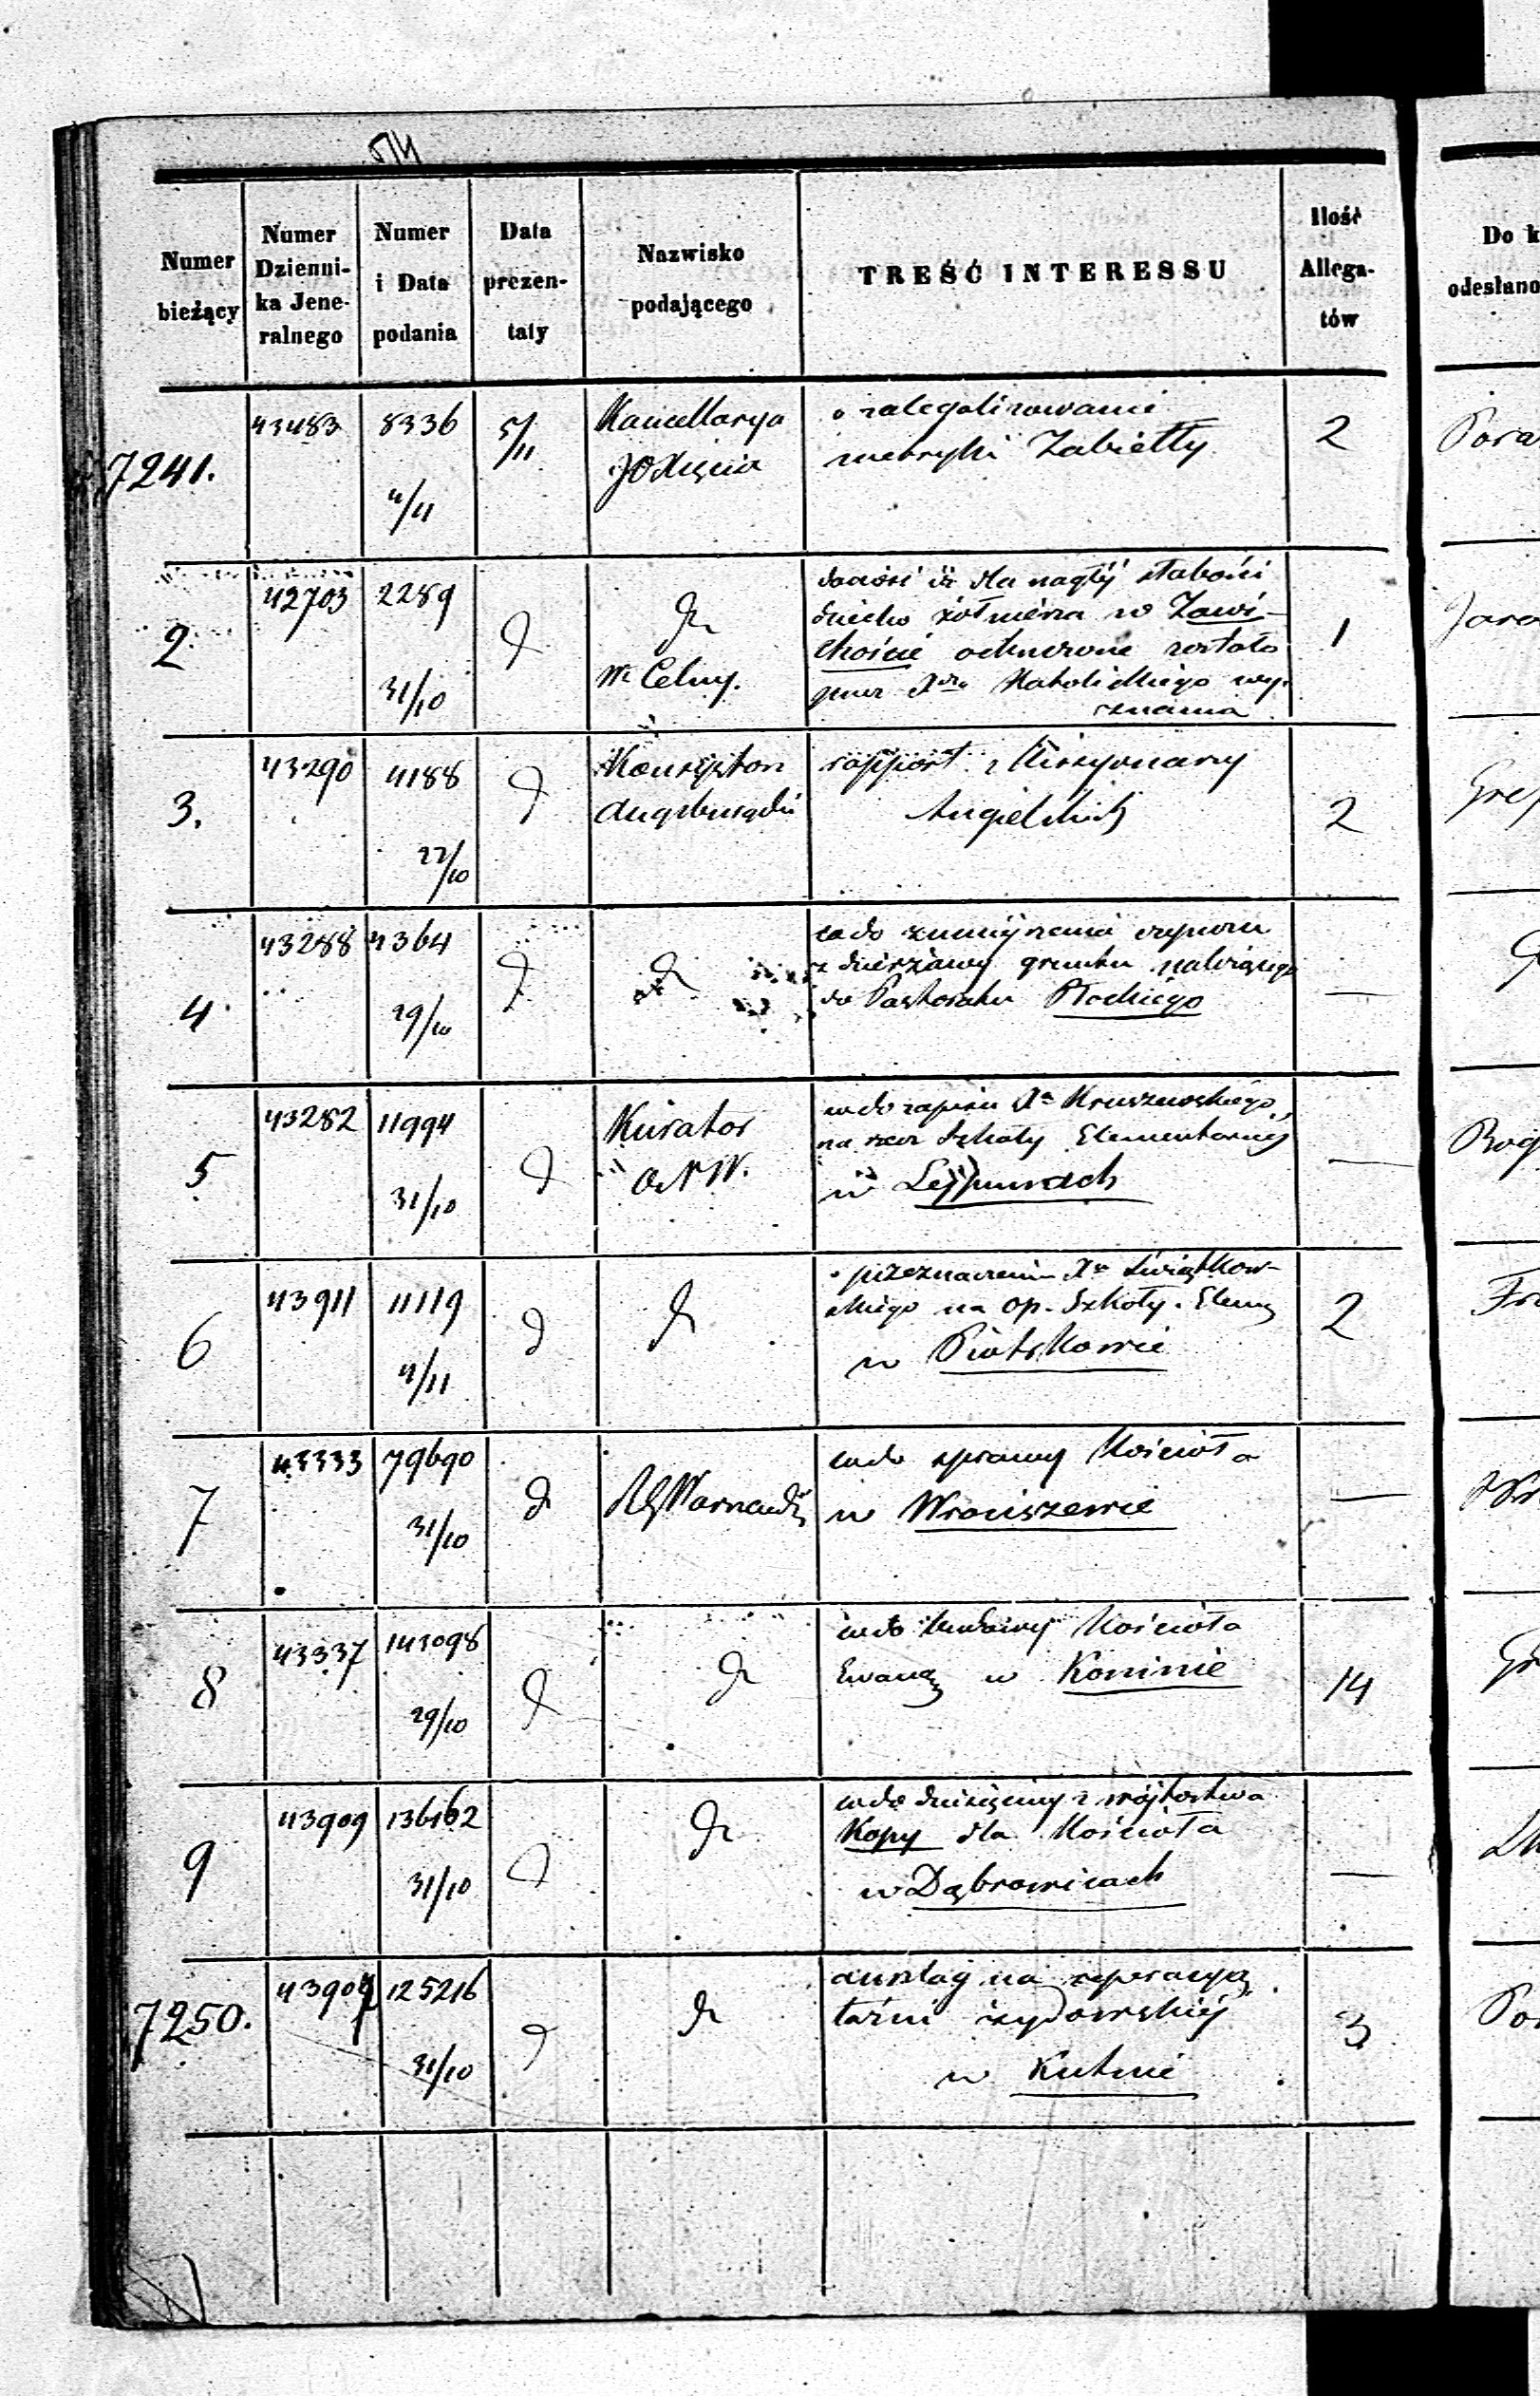 514
Numer bieżący
Numer Dzienni-ka Jene-ralnego
Numer i Data podania
Data prezen-taty
Nazwisko podającego
TREŚĆ INTERESSU
Ilość Allega-tów
Do k
odesłano
7241.
43483
8336
4/11
5/11
Kancellarya
JOXięcia
o zalegalizowanie
metryki Zabiełły
2
2
42703
2289
31/10
W. Celny.
donosi iż dla nagłéj słabości
dziecko żołnierza w Zawi-
choście ochrzczone zostało
przez Xdza Katolickiego wy-
znania
1
3.
43290
4188
22/10
Konsystorz
Augsburgski
rapport z Missyonarzy
Angielskich
2
4.
43288
4364
29/10
co do zmniejszenia czynszu
z dzierżawy gruntu należącego
do Pastoratu Płockiego
—
5
43282
11994
31/10
Kurator
O. N. W.
co do zapisu Xa Kruszewskiego
na rzecz Szkoły Elementarnej
w Lejpunach
—
6
43911
11119
4/11
o przeznaczenie Xa Świątkow-
skiego na op. Szkoły Elem
w Piotrkowie
2
7
43333
79690
31/10
RG Warszawski
co do sprawy Kościoła
w Wrociszewie
—
8
43337
143098
29/10
co do budowy Kościoła
Ewang w Koninie
14
9
43909
136162
31/10
co do dziesięciny z wójtostwa
Kopy dla Kościoła
w Dąbrowicach
—
7250.
125216
31/10
anszlag na reperacyą
łaźni żydowskiéj
w Kutnie
3